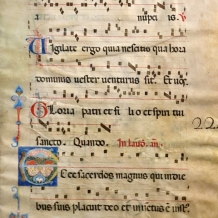 nupci is.
Vigilate ergo quia nescitis qua hora
dominus vester venturus sit. Et vos
Gloria patri et fi lio et spiri tui
sancto. Quando. In laud.
Ecce sacerdos magnus qui in die
bus suis placuit deo et inventus est ius.
22